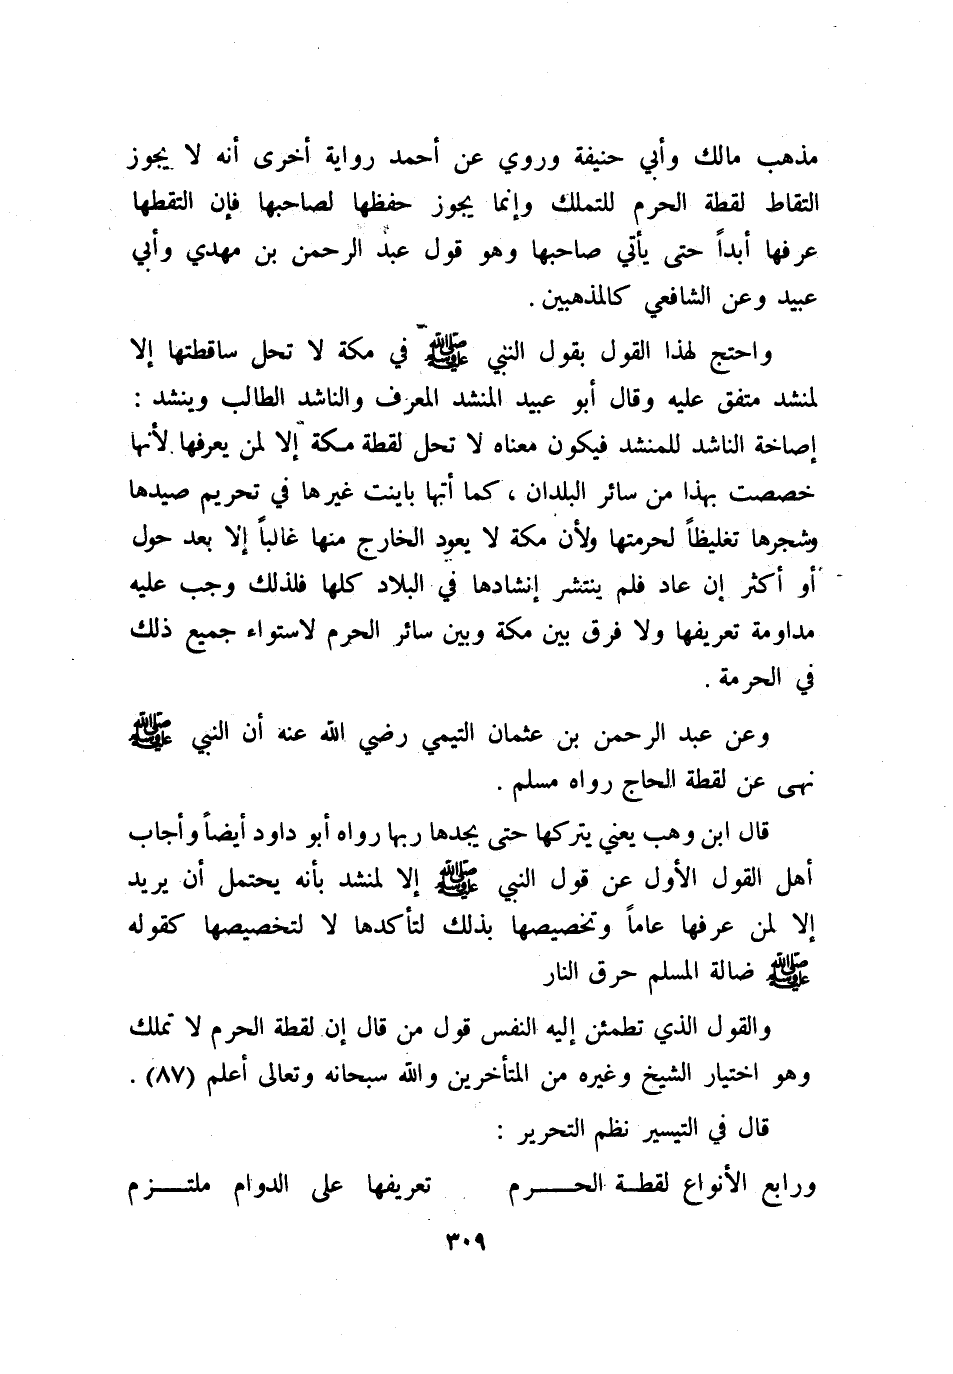 مذهب مالك وأبي حنيفة وروي عن أحمد رواية أخرى أنه لا يجوز
التقاط لقطة الحرم للتملك وإنما يجوز حفظها لصاحبها فإن التقطها
عرفها أبداً حتى يأتي صاحبها وهو قول عبد الرحمن بن مهدي وأبي
عبيد وعن الشافعي كالمذهبين .
واحتج لهذا القول بقول النبي ﷺ في مكة لا تحل ساقطتها إلا
لمنشد متفق عليه وقال أبو عبيد المنشد المعرف والناشد الطالب وينشد :
إصاخة الناشد للمنشد فيكون معناه لا تحل لقطة مكة إلا لمن يعرفها لأنها
خصصت بهذا من سائر البلدان ، كما أنها باينت غيرها في تحريم صيدها
وشجرها تغليظاً لحرمتها ولأن مكة لا يعود الخارج منها غالباً إلا بعد حول
أو أكثر إن عاد فلم ينتشر إنشادها في البلاد كلها فلذلك وجب عليه
مداومة تعريفها ولا فرق بين مكة وبين سائر الحرم لاستواء جميع ذلك
في الحرمة .
وعن عبد الرحمن بن عثمان التيمي رضي الله عنه أن النبي ﷺ
نهى عن لقطة الحاج رواه مسلم .
قال ابن وهب يعني يتركها حتى يجدها ربها رواه أبو داود أيضاً وأجاب
أهل القول الأول عن قول النبي ﷺ إلا لمنشد بأنه يحتمل أن يريد
إلا لمن عرفها عاماً وتخصيصها بذلك لتأكدها لا لتخصيصها كقوله
ﷺ ضالة المسلم حرق النار
والقول الذي تطمئن إليه النفس قول من قال إن لقطة الحرم لا تملك
وهو اختيار الشيخ وغيره من المتأخرين والله سبحانه وتعالى أعلم (٨٧) .
قال في التيسير نظم التحرير :
ورابع الأنواع لقطـة الحــــرم تعريفها على الدوام ملتــــزم
٣٠٩